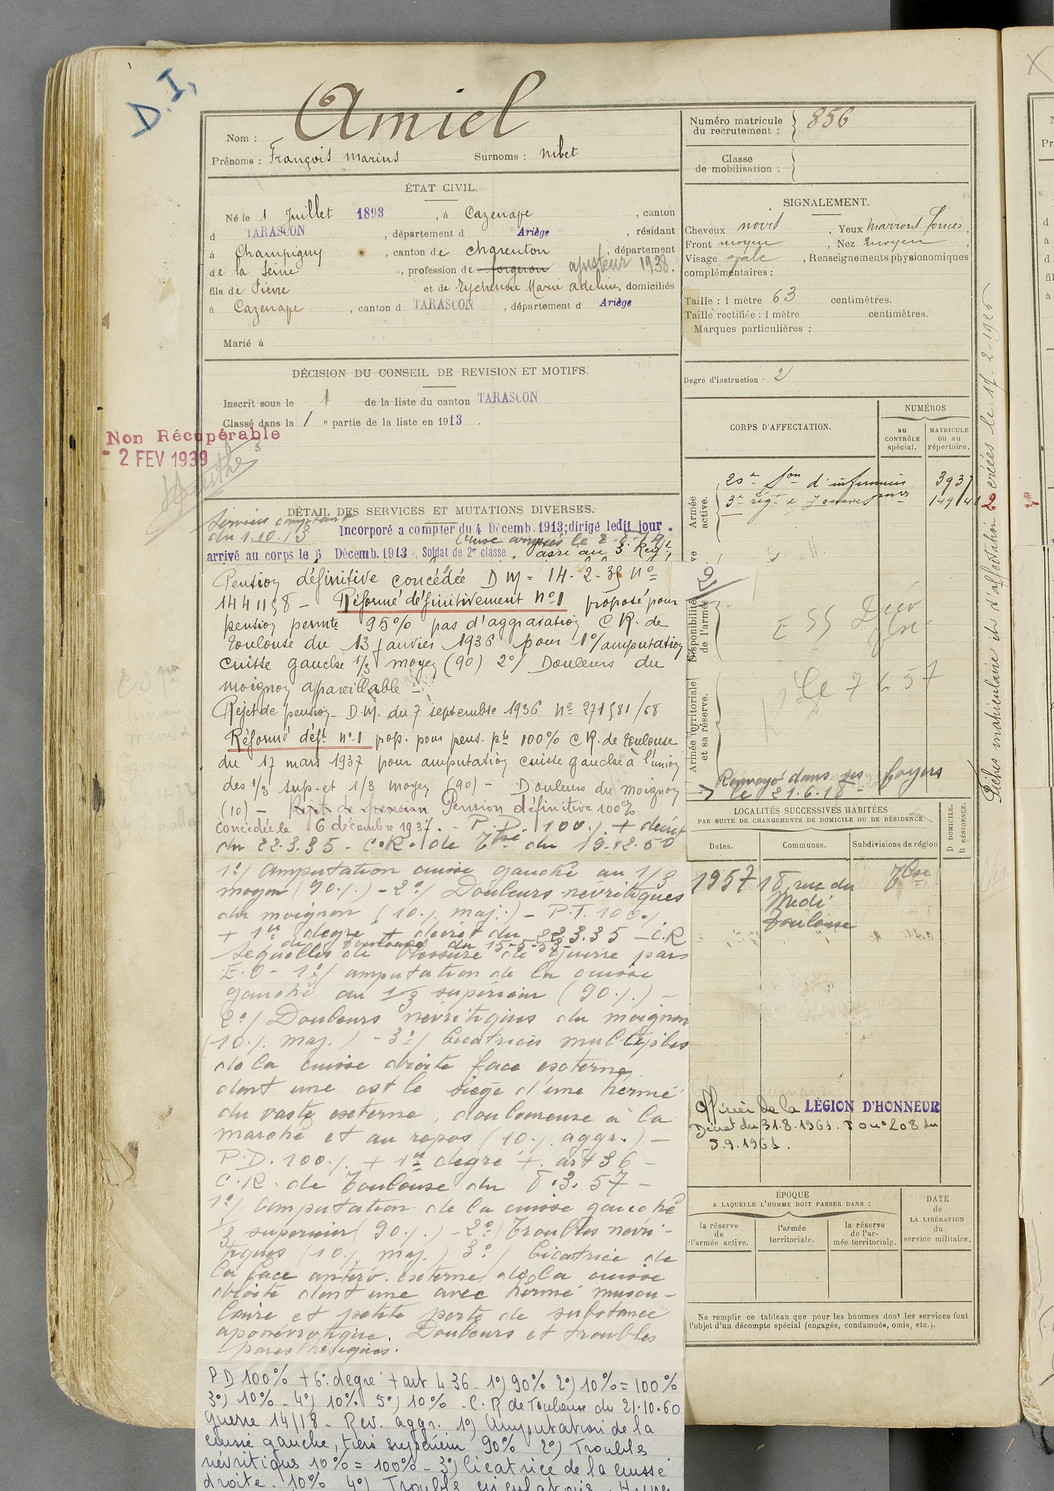 D.I.
Nom : Amiel
Prénoms : François Marius Surnoms : nibet
ÉTAT CIVIL.
Né le 1 Juillet 1893, à Cazenave, canton
d TARASCON, département d Ariège, résidant
à Champigny, canton de Charenton, département
de la Seine, profession de forgeron ajusteur 1938.
fils de Pierre et de Eychenne Marie Adeline, domiciliés
à Cazenave, canton d TARASCON, département d Ariège
Marié à
DÉCISION DU CONSEIL DE REVISION ET MOTIFS.
Inscrit sous le 1 de la liste du canton TARASCON
Classé dans la 1 e partie de la liste en 1913.
Non Récupérable
- 2 FEV 1939
DÉTAIL DES SERVICES ET MUTATIONS DIVERSES.
Services comptant
du 1.10.13
Incorporé a compter du 4 Décemb. 1913; dirigé ledit jour.
arrivé au corps le 6 Décemb. 1913 - Soldat de 2e classe.
Pension définitive concédée DM = 14-2-35 No
1441158 - Réformé définitivement No1 proposé pour
pension permte 95% pas d'aggravation C.R. de
Toulouse du 13 janvier 1936 pour 1°/ amputation
cuisse gauche 1/3 moyen (90) 2°/ Douleurs du
moignon appareillable -
Rejet de pension - D.M. du 7 septembre 1936 No 271581/68
Réformé déft. no 1 prop. pour pens. pte 100% C.R. de Toulouse
du 17 mars 1937 pour amputation cuisse gauche à l'union
des 1/3 sup. et 1/3 moyen (90) - Douleurs du moignon
(10) - Pension définitive 100%
concédée le 16 décembre 1937. - P.D. 100% + décret
du 22.3.35 - C.R. de Tlse du 19.12.50
1°/ amputation cuisse gauche au 1/3
moyen (90%) - 2°/ Douleurs névritiques
du moignon (10% maj.) - P.T. 100%
+ 1er degré + décret du 22.3.35 - C.R
de Toulouse du 15-5-53
Séquelles de blessure de guerre par
E.O - 1°/ amputation de la cuisse
gauche au 1/3 supérieur (90%) -
2°/ Douleurs névritiques du moignon
(10% maj.) - 3°/ Cicatrices multiples
de la cuisse droite face externe
dont une est le siège d'une hernie
du vaste externe, douloureuse à la
marche et au repos (10% aggr.) -
P.D. 100% + 1er degré + art 36 -
C.R. de Toulouse du 8.3.57 -
1°/ Amputation de la cuisse gauche
1/3 supérieur (90%) - 2°/ Troubles névri-
tiques (10% maj.) 3°/ Cicatrice de
la face antéro-externe de la cuisse
droite dont une avec hernie muscu-
laire et petite perte de substance
aponévrotique. Douleurs et troubles
paresthésiques.
PD 100% + 6° degré + art 436 - 1°) 90% 2°) 10% = 100%
3°) 10% - 4°) 10% 5°) 10% - C.R de Toulouse du 21.10.60
Guerre 14/18 - Rev. aggr. 1°) Amputation de la
cuisse gauche, tiers supérieur 90% 2°) Troubles
névritiques 10% = 100% - 3°) Cicatrice de la cuisse
droite. 10% 4°) Troubles circulatoires.
Numéro matricule du recrutement : 856
Classe de mobilisation :
SIGNALEMENT.
Cheveux noirs, Yeux marrons foncés,
Front moyen, Nez moyen,
Visage ovale, Renseignements physionomiques
complémentaires :
Taille : 1 mètre 63 centimètres.
Taille rectifiée : 1 mètre centimètres.
Marques particulières :
Degré d'instruction : 2
CORPS D'AFFECTATION.
NUMÉROS
au CONTRÔLE spécial.
MATRICULE ou au répertoire.
Armée active.
20e Son d'infirmiers 3937
3e rég. de Zouaves
Disponibilité
de l'armée
2
Armée territoriale et sa réserve.
Renvoyé dans ses foyers
le 21.6.18 -
LOCALITÉS SUCCESSIVES HABITÉES
PAR SUITE DE CHANGEMENTS DE DOMICILE OU DE RÉSIDENCE.
Dates. Communes. Subdivisions de région
D DOMICILE.
R RÉSIDENCE.
1957 18 rue du Tlse
Midi
Toulouse
Officier de la LÉGION D'HONNEUR
Décret du 31.8.1961. J.O no 208 du
5.9.1961.
ÉPOQUE
A LAQUELLE L'HOMME DOIT PASSER DANS :
la réserve de l'armée active.
l'armée territoriale.
la réserve de l'armée territoriale.
DATE
DE
LA LIBÉRATION
du
service militaire.
Ne remplir ce tableau que pour les hommes dont les services font
l'objet d'un décompte spécial (engagés, condamnés, omis, etc.).
Fiches matriculaire et d'affectation créées le 17-2-1926